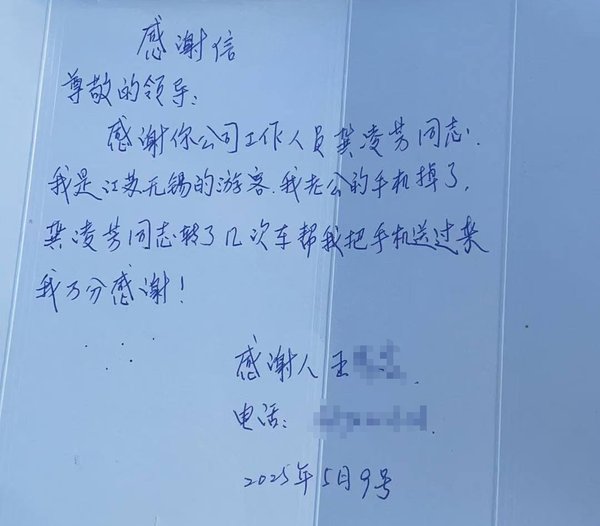 感谢信
尊敬的领导:
感谢你公司工作人员龚凌芳同志.
我是江苏无锡的游客.我老公的手机掉了,
龚凌芳同志转了几次车帮我把手机送过来
我万分感谢!
感谢人 王
电话:
2025年5月9号